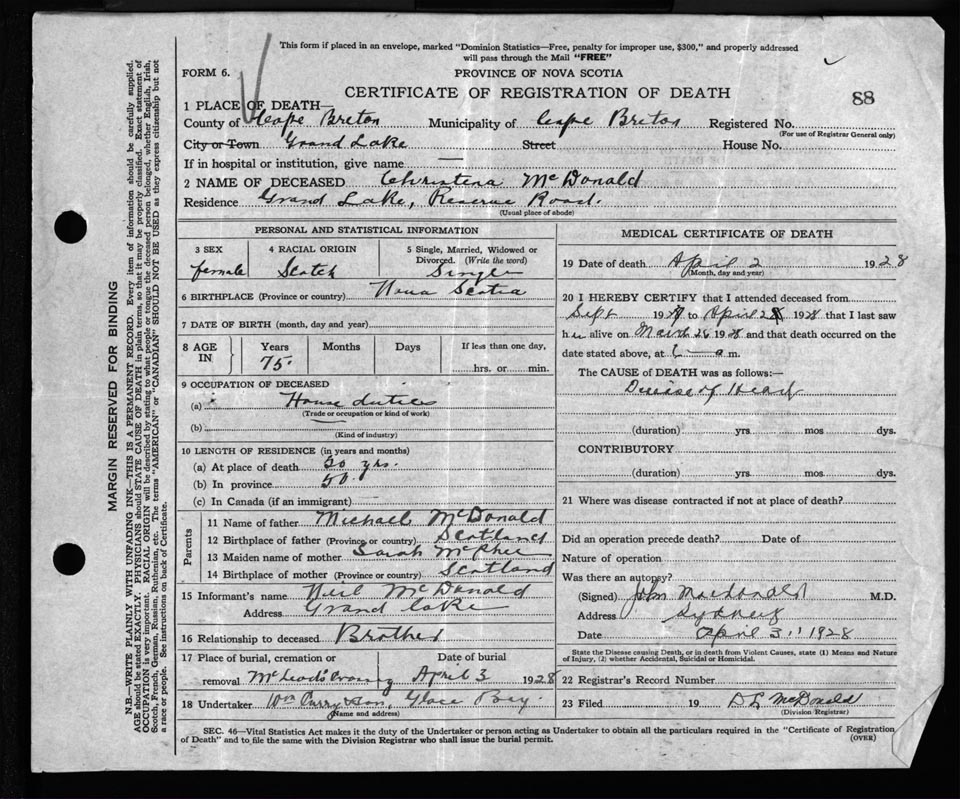 This form if placed in an envelope, marked "Dominion Statistics—Free, penalty for improper use, $300," and properly addressed
will pass through the Mail "FREE"
FORM 6.
PROVINCE OF NOVA SCOTIA
CERTIFICATE OF REGISTRATION OF DEATH
88
1 PLACE OF DEATH—
County of Cape Breton Municipality of Cape Breton Registered No.
(For use of Registrar General only)
City or Town Grand Lake Street House No.
If in hospital or institution, give name —
2 NAME OF DECEASED Christina McDonald
Residence Grand Lake, Reserve Road.
(Usual place of abode)
PERSONAL AND STATISTICAL INFORMATION
3 SEX 4 RACIAL ORIGIN 5 Single, Married, Widowed or
Divorced. (Write the word)
female Scotch Single
6 BIRTHPLACE (Province or country) Nova Scotia
7 DATE OF BIRTH (month, day and year)
8 AGE IN Years Months Days If less than one day,
75. hrs. or min.
9 OCCUPATION OF DECEASED
(a) House duties
(Trade or occupation or kind of work)
(b)
(Kind of industry)
10 LENGTH OF RESIDENCE (in years and months)
(a) At place of death yrs.
(b) In province
(c) In Canada (if an immigrant)
Parents
11 Name of father Michael McDonald
12 Birthplace of father (Province or country) Scotland
13 Maiden name of mother Sarah McPhee
14 Birthplace of mother (Province or country) Scotland
15 Informant's name Neil McDonald
Address Grand Lake
16 Relationship to deceased Brother
17 Place of burial, cremation or Date of burial
removal April 3 1928
18 Undertaker Wm Curry & Son, Glace Bay
(Name and address)
MEDICAL CERTIFICATE OF DEATH
19 Date of death April 2 1928
(Month, day and year)
20 I HEREBY CERTIFY that I attended deceased from
Sept 1927 to April 1928 that I last saw
her alive on March 1928 and that death occurred on the
date stated above, at a m.
The CAUSE OF DEATH was as follows:—
Disease of Heart
(duration) yrs. mos dys.
CONTRIBUTORY
(duration) yrs. mos. dys.
21 Where was disease contracted if not at place of death?
Did an operation precede death? Date of
Nature of operation
Was there an autopsy?
(Signed) John Macdonald M.D.
Address Sydney
Date April 3 1928
State the Disease causing Death, or in death from Violent Causes, state (1) Means and Nature
of Injury, (2) whether Accidental, Suicidal or Homicidal.
22 Registrar's Record Number
23 Filed 19 D L McDonald
(Division Registrar)
SEC. 46—Vital Statistics Act makes it the duty of the Undertaker or person acting as Undertaker to obtain all the particulars required in the "Certificate of Registration
of Death" and to file the same with the Division Registrar who shall issue the burial permit.
(OVER)
MARGIN RESERVED FOR BINDING
N.B.—WRITE PLAINLY, WITH UNFADING INK—THIS IS A PERMANENT RECORD. Every item of information should be carefully supplied.
AGE should be stated EXACTLY. PHYSICIANS should STATE CAUSE OF DEATH in plain terms, so that it may be properly classified. Exact statement of
OCCUPATION is very important. RACIAL ORIGIN will be described by stating to what people or tongue the deceased person belonged, whether English, Irish,
Scotch, French, German, Russian, Ruthenian, etc. The terms "AMERICAN" or "CANADIAN" SHOULD NOT BE USED as they express citizenship but not
a race or people. See instructions on back of Certificate.